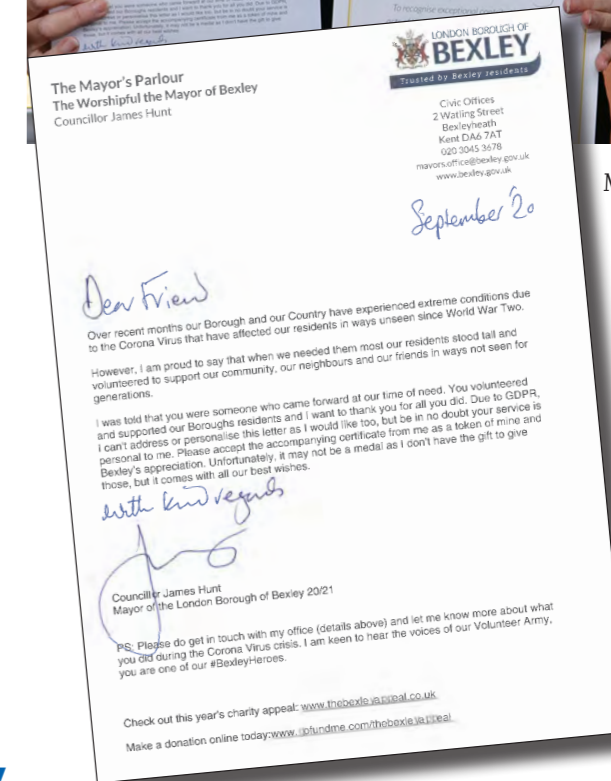 To recognise exceptional
with kind regards
The Mayor's Parlour
The Worshipful the Mayor of Bexley
Councillor James Hunt
LONDON BOROUGH OF
BEXLEY
Trusted by Bexley residents
Civic Offices
2 Watling Street
Bexleyheath
Kent DA6 7AT
020 3045 3678
mayors.office@bexley.gov.uk
www.bexley.gov.uk
September '20
Dear Friend
Over recent months our Borough and our Country have experienced extreme conditions due
to the Corona Virus that have affected our residents in ways unseen since World War Two.
However, I am proud to say that when we needed them most our residents stood tall and
volunteered to support our community, our neighbours and our friends in ways not seen for
generations.
I was told that you were someone who came forward at our time of need. You volunteered
and supported our Boroughs residents and I want to thank you for all you did. Due to GDPR,
I can't address or personalise this letter as I would like too, but be in no doubt your service is
personal to me. Please accept the accompanying certificate from me as a token of mine and
Bexley's appreciation. Unfortunately, it may not be a medal as I don't have the gift to give
those, but it comes with all our best wishes.
with kind regards
Councillor James Hunt
Mayor of the London Borough of Bexley 20/21
PS: Please do get in touch with my office (details above) and let me know more about what
you did during the Corona Virus crisis. I am keen to hear the voices of our Volunteer Army,
you are one of our #BexleyHeroes.
Check out this year's charity appeal: www.thebexleyappeal.co.uk
Make a donation online today:www.gofundme.com/thebexleyappeal
M